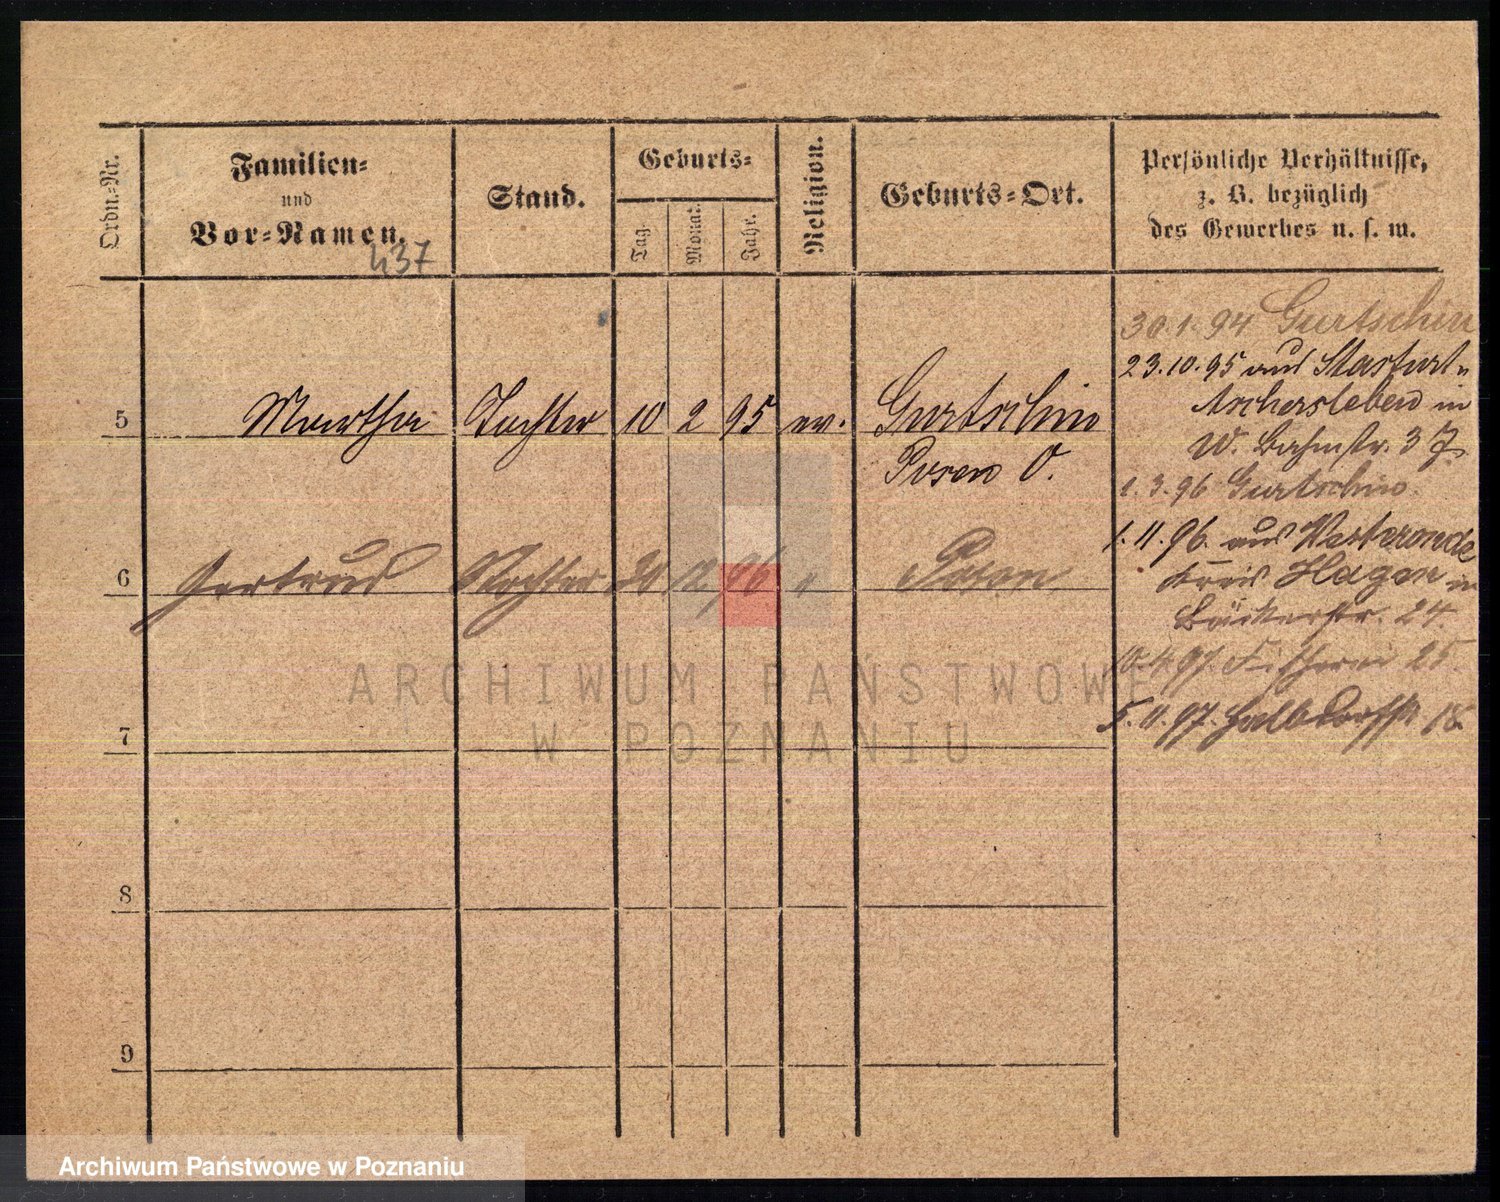 Ordn.-Nr.
Familien-
und
Vor-Namen.
437
Stand.
Geburts-
Tag.
Monat.
Jahr.
Religion.
Geburts-Ort.
Persönliche Verhältnisse,
z. B. bezüglich
des Gewerbes u. s. w.
30.1.94 Gurtschin
23.10.95 aus Stasfurt-
Aschersleben in
W. Bahnstr. 37
5 Martha Tochter 10 2 95 ev. Gurtschin
Posen O.
1.3.96 Gurtschin.
1.11.96. aus Westeronde
Kreis Hagen in
Bäckerstr. 24.
6 Gertrud Tochter 20 12 96 " Posen
10.4.97. Fischerei 25.
5.11.97. Halbdorfstr 18.
7
8
9
ARCHIWUM PAŃSTWOWE
W POZNANIU
Archiwum Państwowe w Poznaniu